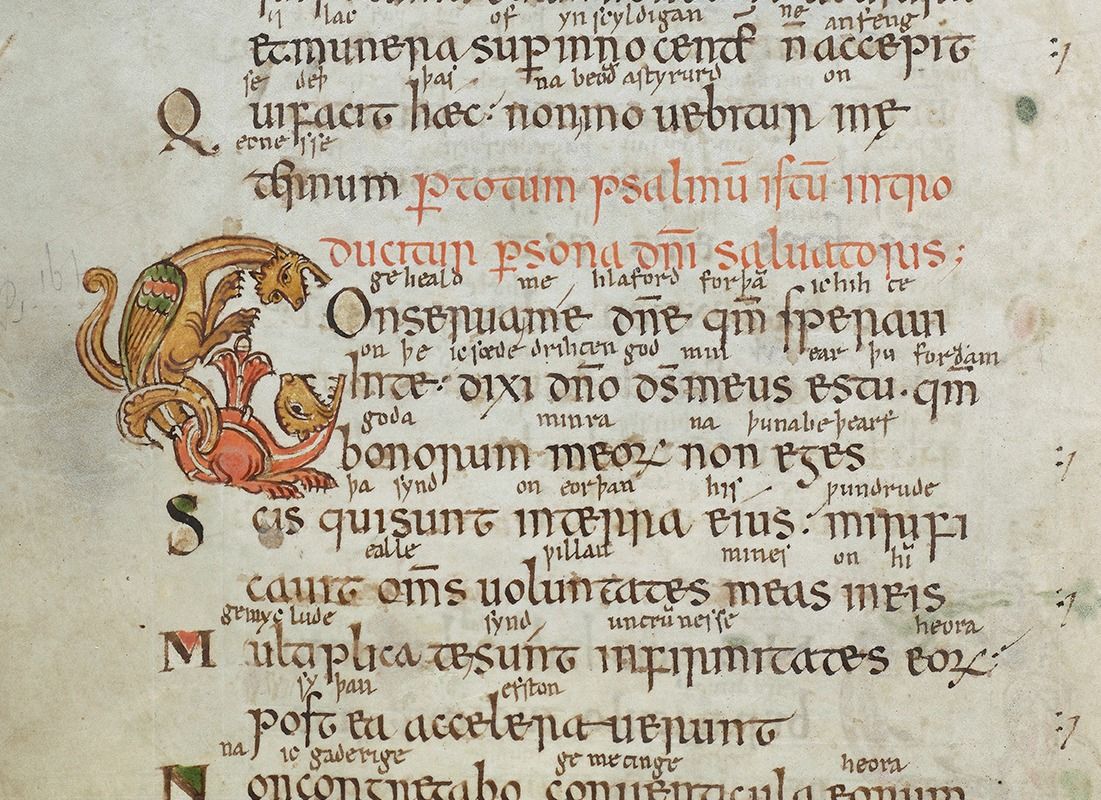 lac of unscyldigan ne anfeng
Et munera sup innocentē n̄ accepit :7
se deþ þas na beoð astyrurd on
Qui facit hæc· non mouebitur in ę
ecnesse
ternum ꝑ totum psalmū istū intro
ducitur ꝑsona dn̄i saluatoris;
geheald me hlaford forþā ic hih te
Conserua me dn̄e qm̄ speraui
on þe ic sæde drihten god min ear þu forðam
In te· dixi dn̄o ds̄ meus es tu· qm̄
goda minra na þu nabeþearf
bonorum meoꝝ non eges :7
þa synd on eorþan his ƿundrude
Scis qui sunt in terra eius· mirifi
ealle ƿillan mines on hī
cauit om̄s uoluntates meas in eis :7
gemyclude synd untrūnesse heora
Multiplicatę sunt infirmitates eoꝝ·
sy þan efston
post ea accelerauerunt :7
na ic gaderige gemetinge heora
Non congregabo conuenticula eorum